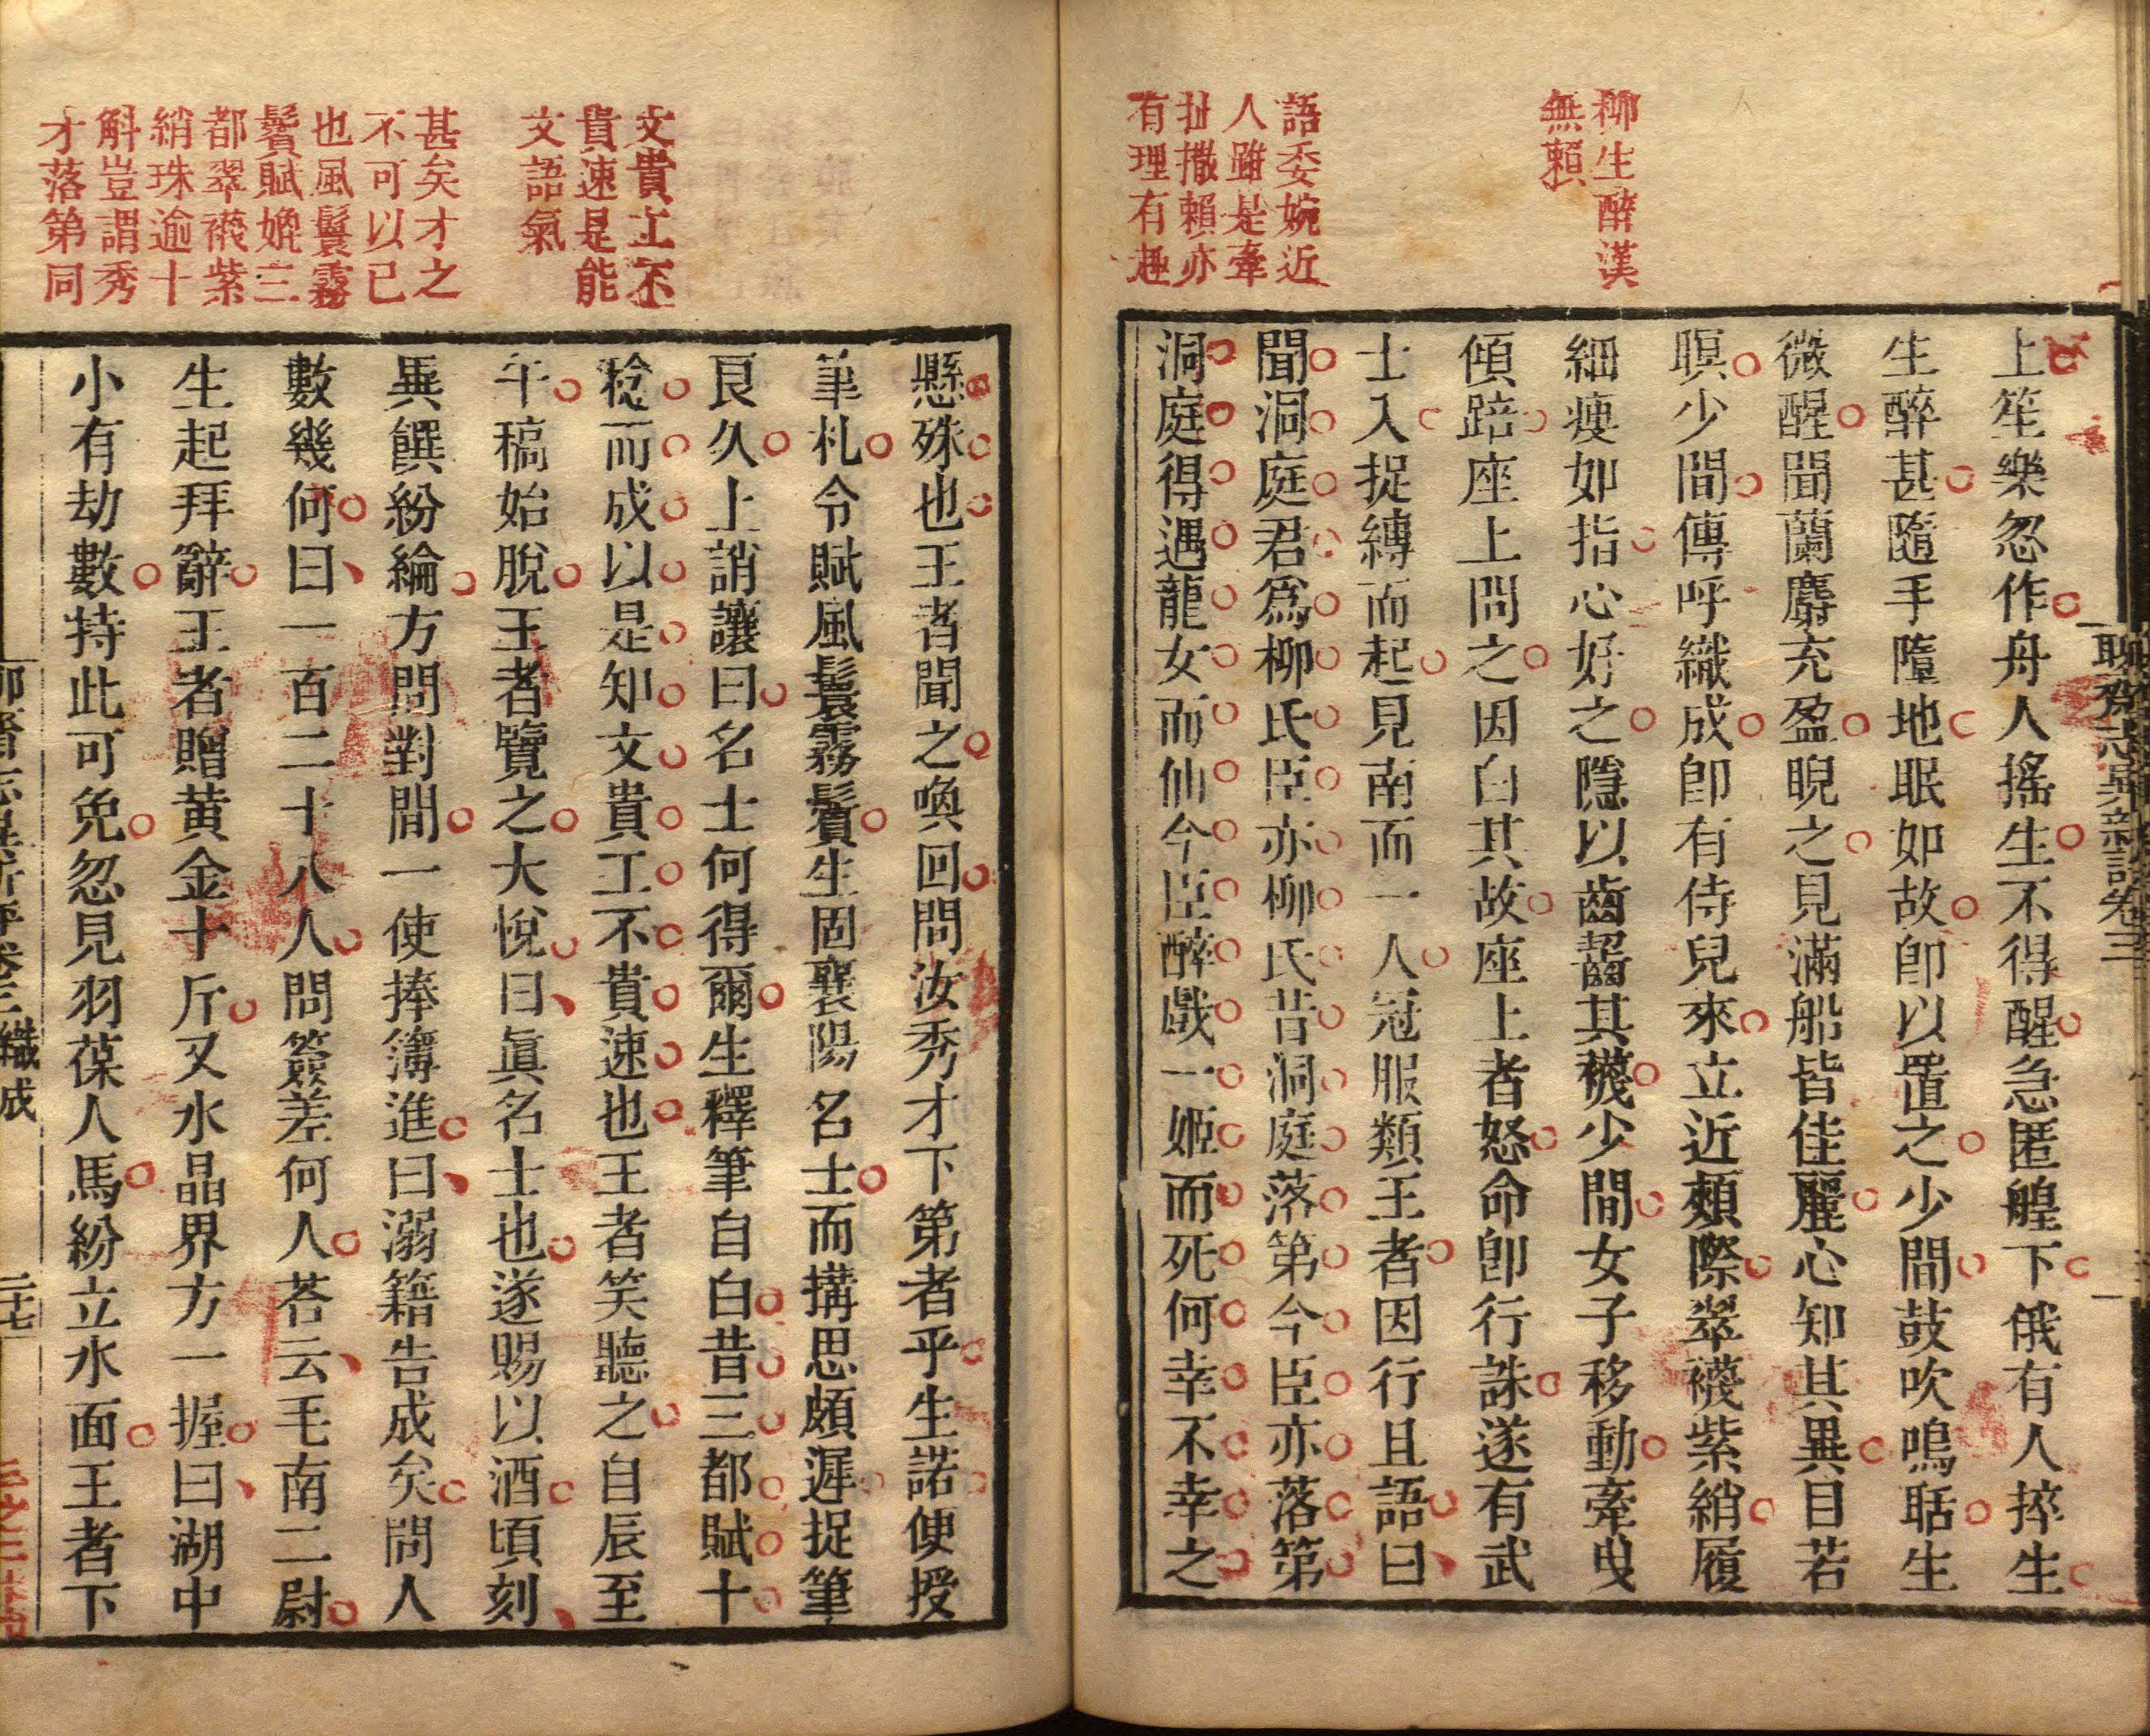 柳生醉漢
無賴
語委婉近
人雖是牽
扯撒賴亦
有理有趣
聊齋志異新評卷三
上笙樂忽作舟人搖生不得醒急匿艎下俄有人捽生
生醉甚隨手墮地眠如故卽以置之少間鼓吹鳴聒生
微醒聞蘭麝充盈睨之見滿船皆佳麗心知其異目若
瞑少間傳呼織成卽有侍兒來立近頰際翠襪紫綃履
細瘦如指心好之隱以齒齧其襪少間女子移動牽曳
傾踣座上問之因白其故座上者怒命卽行誅遂有武
士入捉縛而起見南面一人冠服類王者因行且語曰
聞洞庭君爲柳氏臣亦柳氏昔洞庭落第今臣亦落第
洞庭得遇龍女而仙今臣醉戲一姬而死何幸不幸之
文貴工不
貴速是能
文語氣
甚矣才之
不可以已
也風鬟霧
鬢賦媲三
都翠襪紫
綃珠逾十
斛豈謂秀
才落第同
懸殊也王者聞之喚回問汝秀才下第者乎生諾便授
筆札令賦風鬟霧鬢生固襄陽名士而搆思頗遲捉筆
良久上誚讓曰名士何得爾生釋筆自白昔三都賦十
稔而成以是知文貴工不貴速也王者笑聽之自辰至
午稿始脫王者覽之大悅曰眞名士也遂賜以酒頃刻
異饌紛綸方問對間一使捧簿進曰溺籍告成矣問人
數幾何曰一百二十八人問簽差何人荅云毛南二尉
生起拜辭王者贈黃金十斤又水晶界方一握曰湖中
小有劫數持此可免忽見羽葆人馬紛立水面王者下
聊齋志異新評卷三 織成 二十七